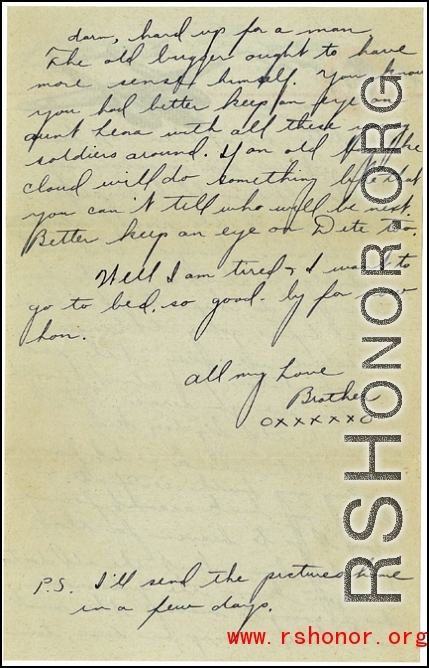 darn, hard up for a man
The old bugger ought to have
more sense himself. You know
you had better keep an eye on
aunt Lena with all these
soldiers around. If an old
cloud will do something like that
you can't tell who will be next.
Better keep an eye on Dete too.
Well I am tired & I want to
go to bed, so good-by for now
hon.
all my Love
Brother
OXXXXXXO
P.S. I'll send the pictures home
in a few days.
RSHONOR.ORG
www.rshonor.org